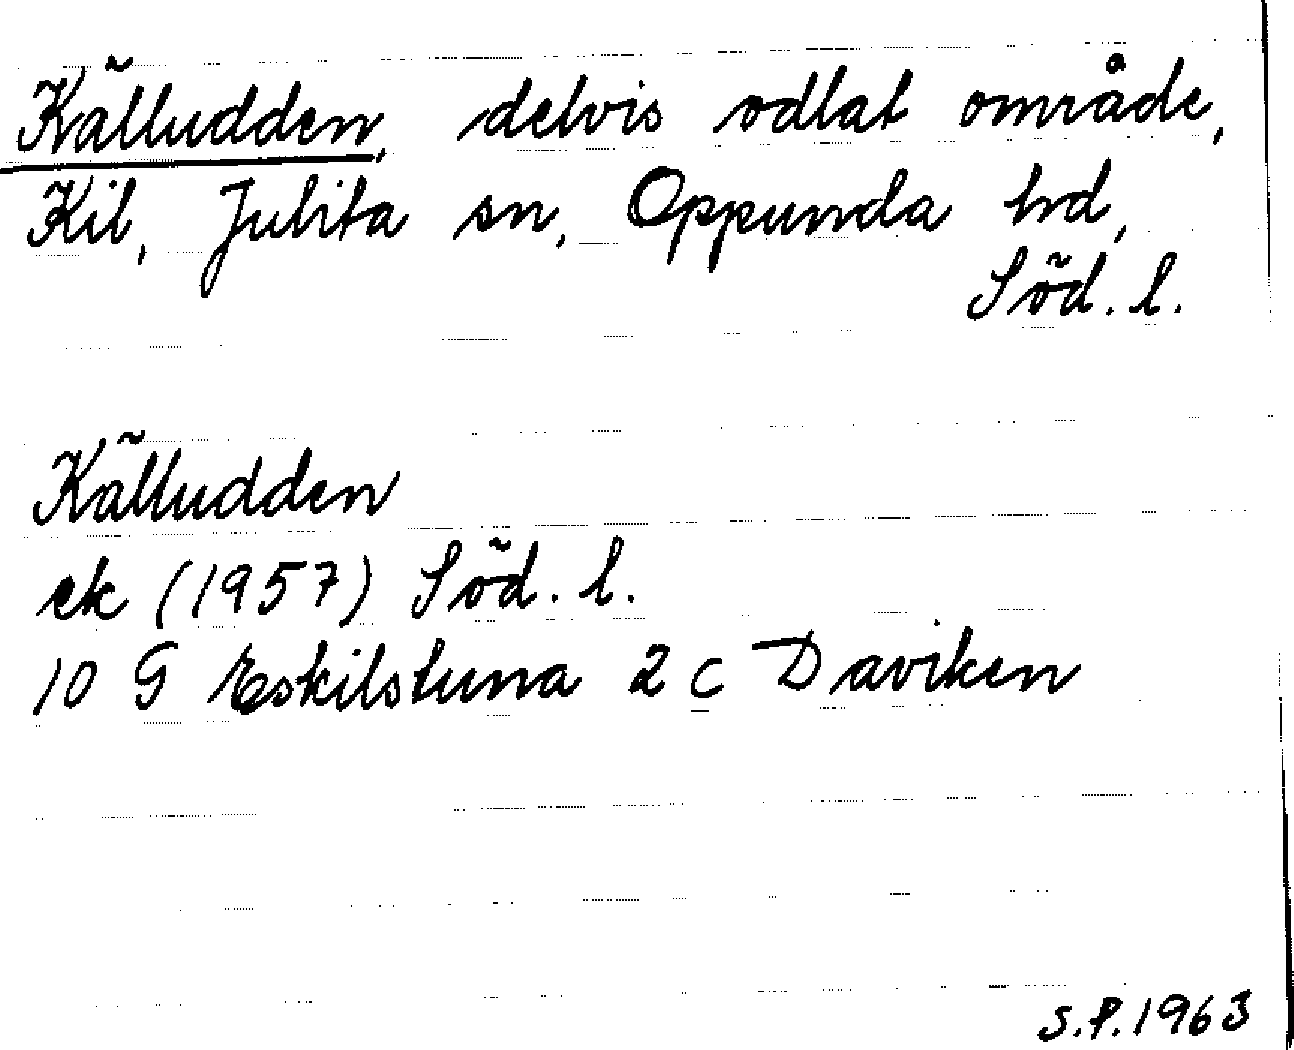 Källudden, delvis odlat område,
Kil, Julita sn, Oppunda hd,
Söd. l.
Källudden
ek (1957) Söd. l.
10 G Eskilstuna 2 c Daviken
S.P. 1963